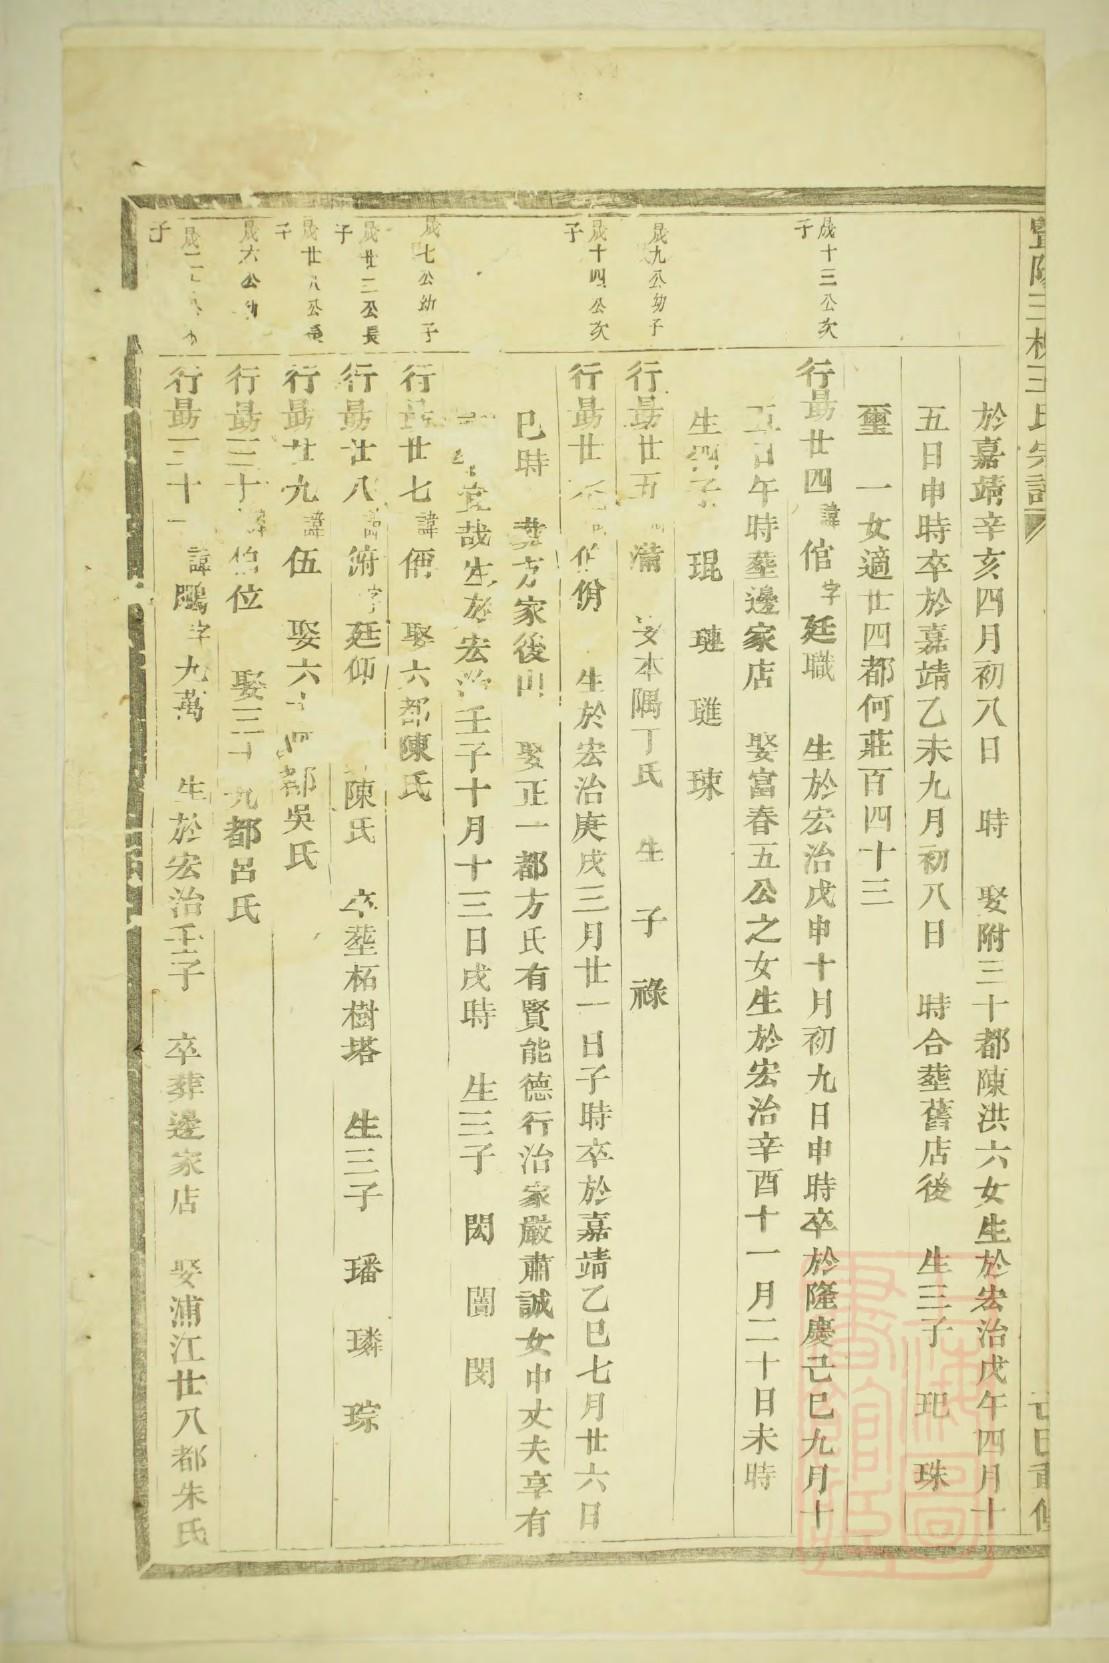 於嘉靖辛亥四月初八日 時 娶附三十都陳洪六女生於宏治戊午四月十
五日申時卒於嘉靖乙未九月初八日 時合塟舊店後 生三子 玘 珠
璽 一女適廿四都何莊百四十三
晟十三公次子
行勗廿四諱倌字廷職 生於宏治戊申十月初九日申時卒於隆慶己巳九月十
五日午時塟邊家店 娶富春五公之女生於宏治辛酉十一月二十日未時
生四子 琨 璉 璡 琜
晟九公幼子
行勗廿五 滿 娶本隅丁氏 生子祿
晟十四公次子
行勗廿 份 生於宏治庚戌三月廿一日子時卒於嘉靖乙巳七月廿六日
巳時 龔方家後山 娶正一都方氏有賢能德行治家嚴肅誠女中丈夫享有
宜哉生於宏治壬子十月十三日戌時 生三子 閎 閶 閔
晟七公幼子
行勗廿七諱俑 娶六都陳氏
晟廿二公長子
行勗廿八諱俯字廷仰 陳氏 卒塟柘樹塔 生三子 璠 璘 琮
晟廿八公長子
行勗廿九諱伍 娶六十四都吳氏
晟六公幼
行勗三十諱伯位 娶三十九都呂氏
子
行勗三十一諱鵰字九萬 生於宏治壬子 卒葬邊家店 娶浦江廿八都朱氏